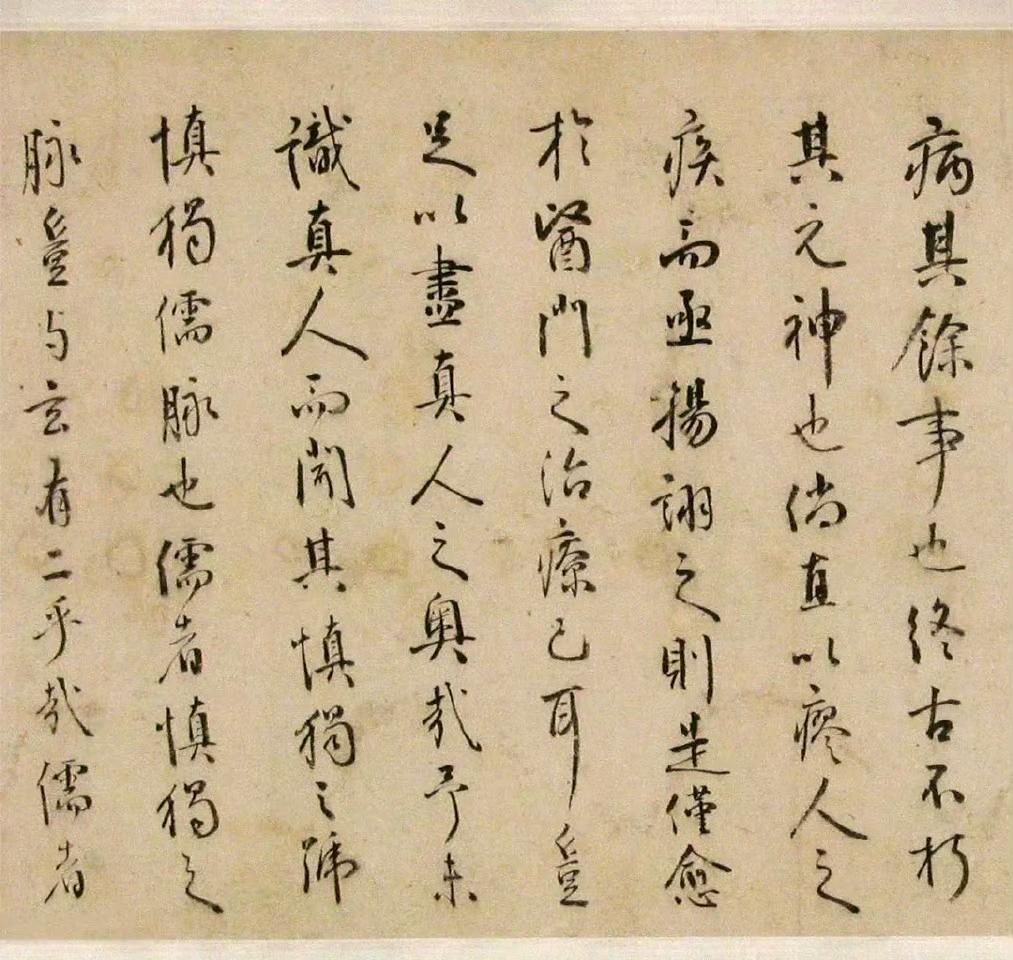 病其餘事也終古不朽
其元神也倘直以瘳人之
疾而亟揚詡之則是僅愈
於醫門之治療已耳豈
足以盡真人之奧哉予未
識真人而聞其慎獨之號
慎獨儒脉也儒者慎獨之
脉豈与玄有二乎哉儒者